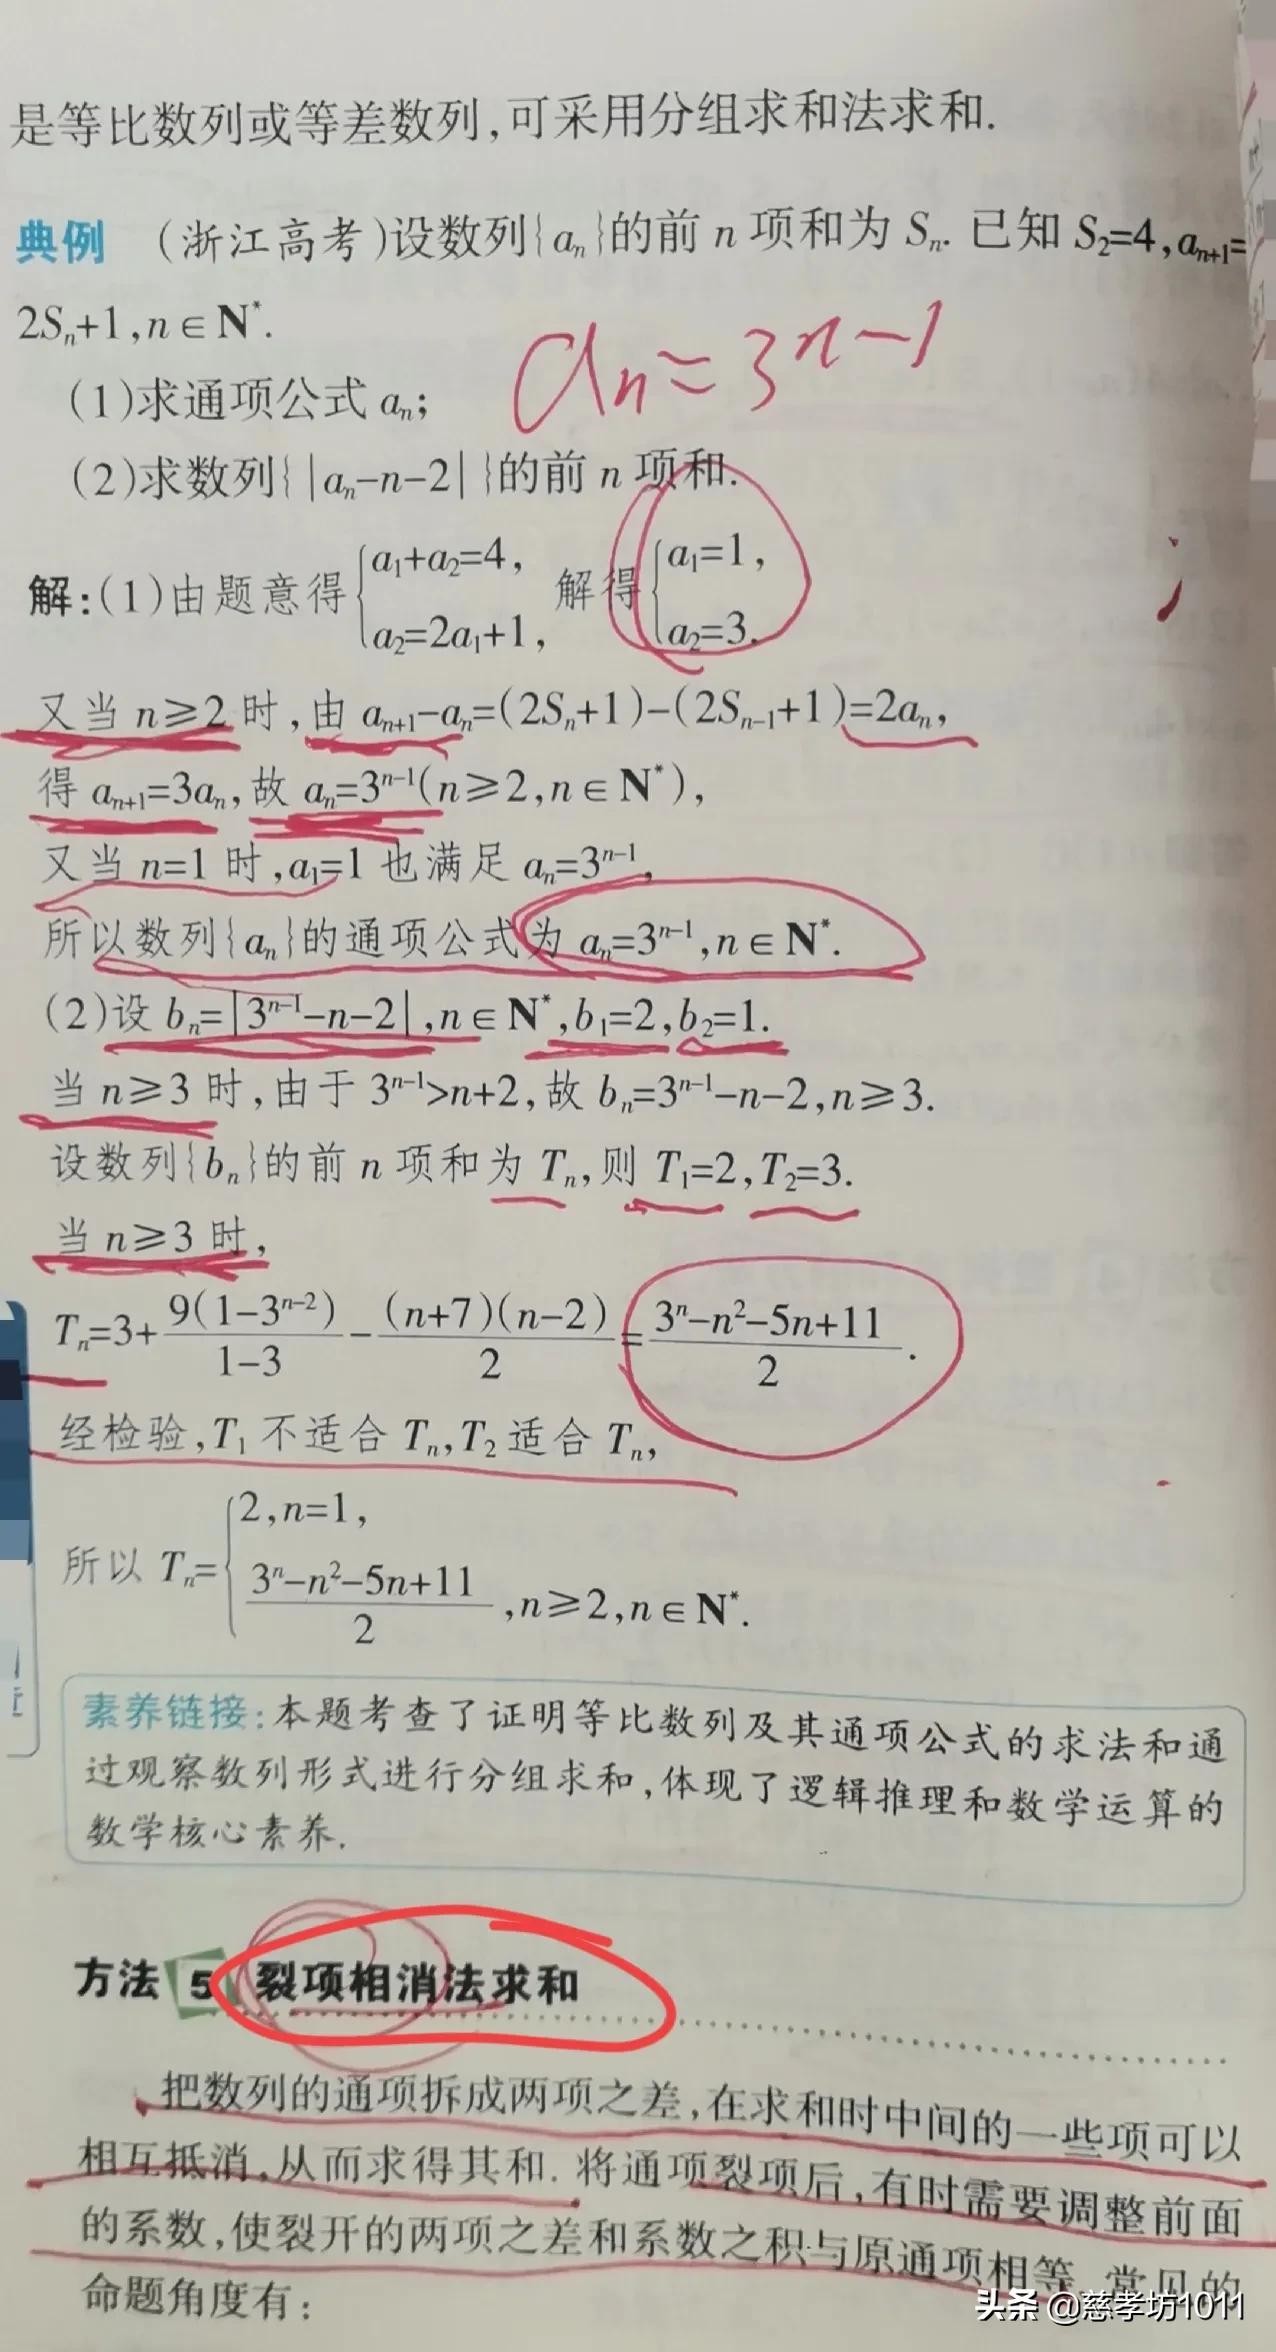 是等比数列或等差数列,可采用分组求和法求和.
典例 (浙江高考)设数列{aₙ}的前 n 项和为 Sₙ. 已知 S₂=4,aₙ₊₁=
2Sₙ+1,n∈N*.
aₙ=3ⁿ⁻¹
(1)求通项公式 aₙ;
(2)求数列{|aₙ-n-2|}的前 n 项和.
解:(1)由题意得{a₁+a₂=4, a₂=2a₁+1, 解得{a₁=1, a₂=3.
又当 n≥2 时,由 aₙ₊₁-aₙ=(2Sₙ+1)-(2Sₙ₋₁+1)=2aₙ,
得 aₙ₊₁=3aₙ,故 aₙ=3ⁿ⁻¹(n≥2,n∈N*),
又当 n=1 时,a₁=1 也满足 aₙ=3ⁿ⁻¹,
所以数列{aₙ}的通项公式为 aₙ=3ⁿ⁻¹,n∈N*.
(2)设 bₙ=|3ⁿ⁻¹-n-2|,n∈N*,b₁=2,b₂=1.
当 n≥3 时,由于 3ⁿ⁻¹>n+2,故 bₙ=3ⁿ⁻¹-n-2,n≥3.
设数列{bₙ}的前 n 项和为 Tₙ,则 T₁=2,T₂=3.
当 n≥3 时,
Tₙ=3+9(1-3ⁿ⁻²)/(1-3)-(n+7)(n-2)/2=(3ⁿ-n²-5n+11)/2.
经检验,T₁ 不适合 Tₙ,T₂ 适合 Tₙ,
所以 Tₙ={2,n=1,
(3ⁿ-n²-5n+11)/2,n≥2,n∈N*.
素养链接:本题考查了证明等比数列及其通项公式的求法和通
过观察数列形式进行分组求和,体现了逻辑推理和数学运算的
数学核心素养.
方法 5 裂项相消法求和
把数列的通项拆成两项之差,在求和时中间的一些项可以
相互抵消,从而求得其和. 将通项裂项后,有时需要调整前面
的系数,使裂开的两项之差和系数之积与原通项相等. 常见的
命题角度有:
头条 @慈孝坊1011